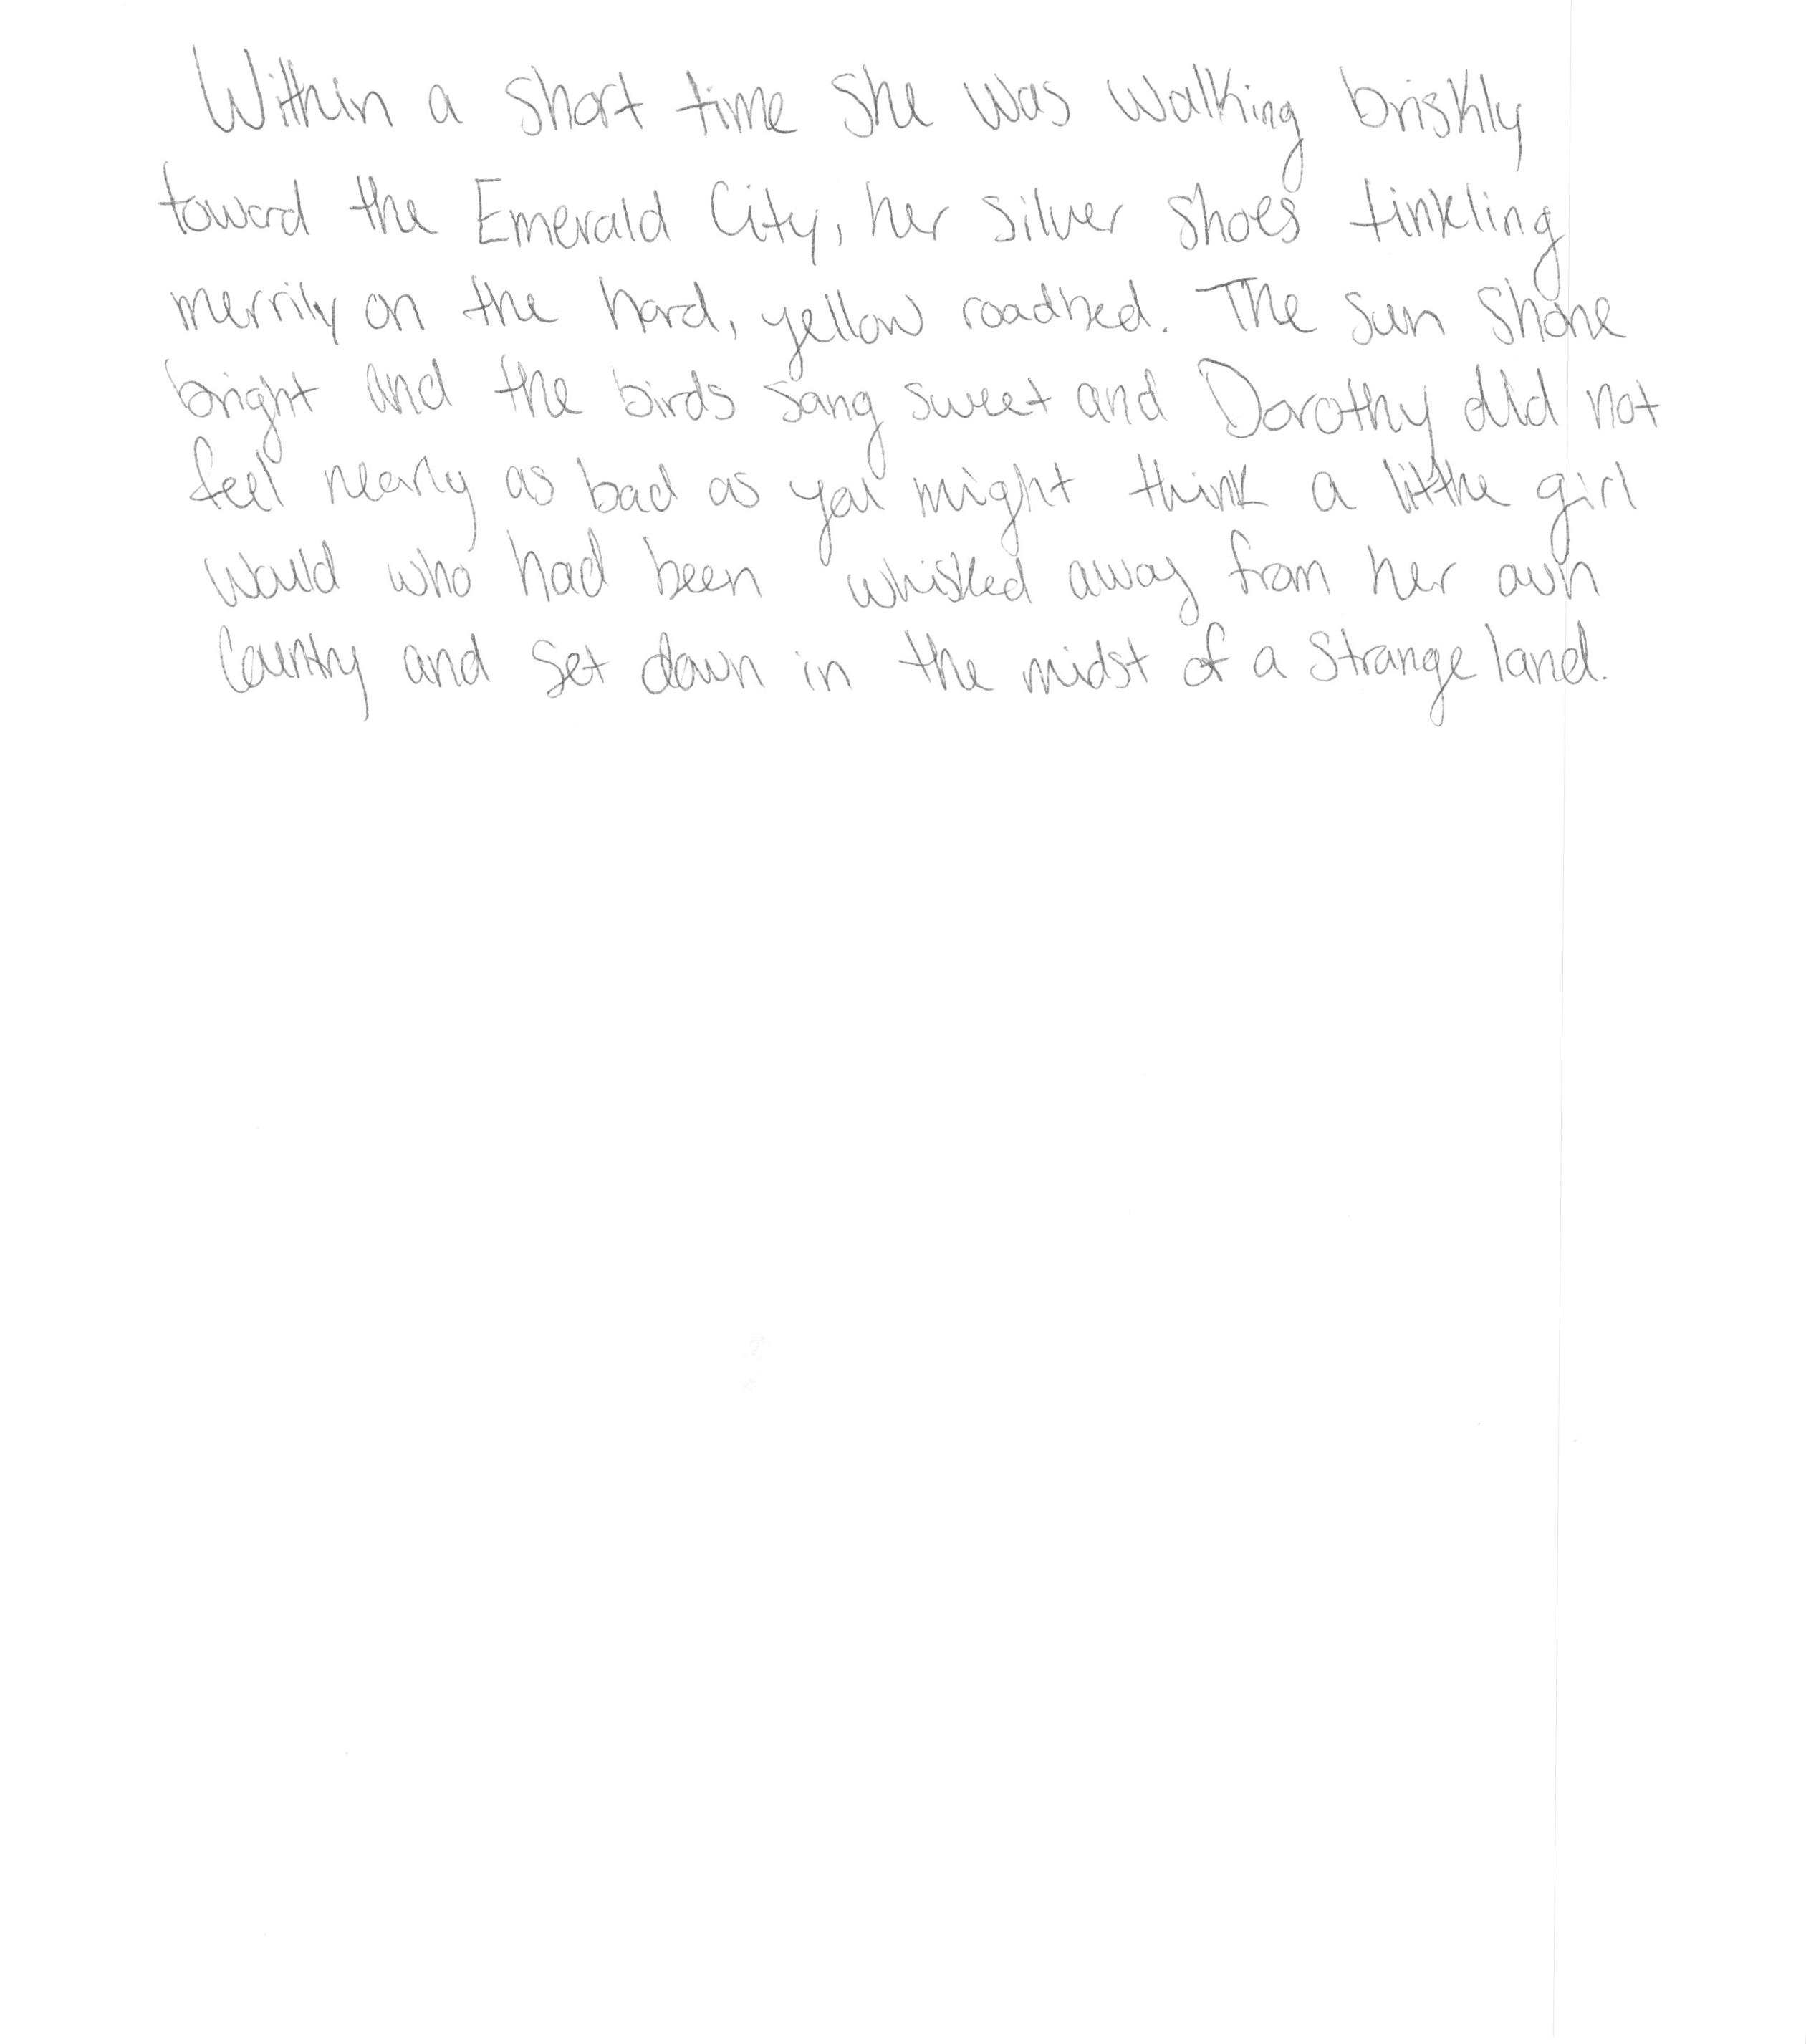 Within a short time she was walking briskly
toward the Emerald City, her silver shoes tinkling
merrily on the hard, yellow roadbed. The sun shone
bright and the birds sang sweet and Dorothy did not
feel nearly as bad as you might think a little girl
would who had been whisked away from her own
Country and set down in the midst of a strange land.